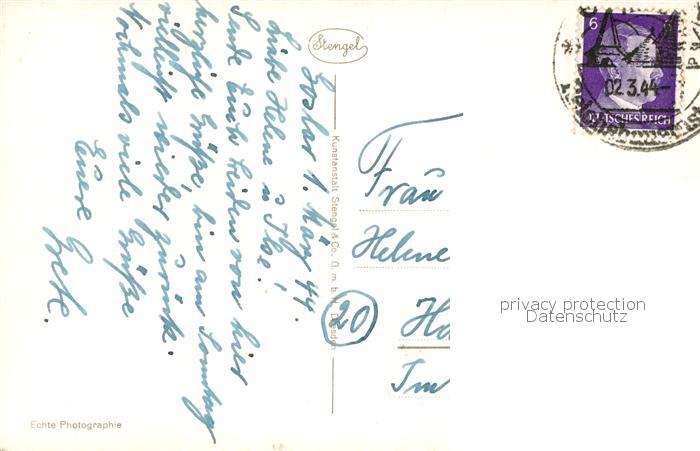 Stengel
Goslar 1. März 44.
Liebe Helene u Ilse!
Sende Euch beiden von hier
herzliche Grüße, bin am Sonntag
vielleicht wieder zurück.
Nochmals viele Grüße
Eure Grete.
Echte Photographie
Kunstanstalt Stengel & Co. G. m. b. H. Dresden
6
02.3.44-
DEUTSCHES REICH
Frau
Helene
20
Im
privacy protection
Datenschutz